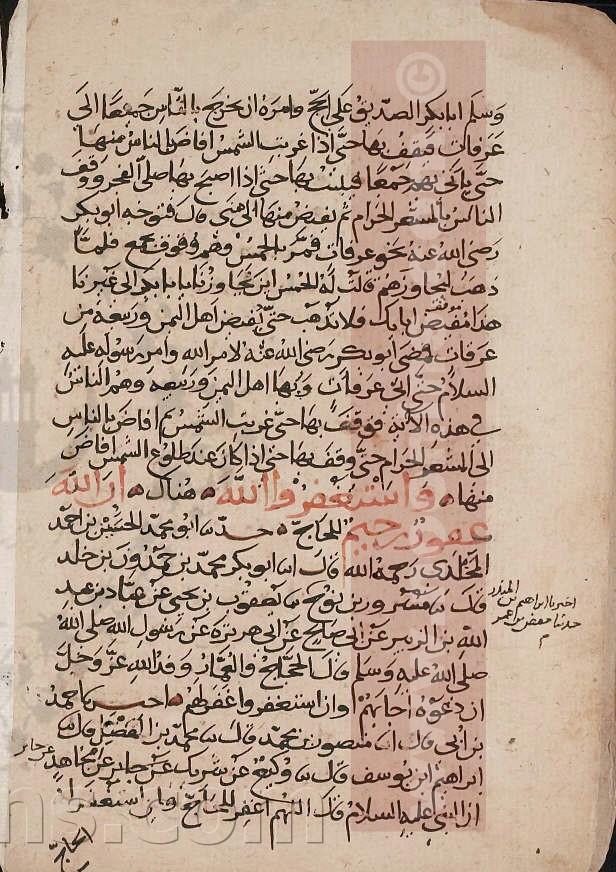 وسلم ابا بكر الصديق على الحج وامره ان يخرج بالناس جميعا الى
عرفات فيقف بها حتى اذا غربت الشمس افاض بالناس منها
حتى ياتى بهم جمعا فيبيت بها حتى اذا اصبح بها صلى الفجر ووقف
الناس بالمشعر الحرام ثم يفيض منها الى منى قال فتوجه ابو بكر
رضى الله عنه نحو عرفات فمر بالحمس وهم وقوف بجمع فلما
ذهب ليجاوزهم قالت له الحمس اين تجاوزنا يا با بكر الى غيرنا
هذا مفيض ابايك فلا تذهب حتى يفيض اهل اليمن وربيعة من
عرفات فمضى ابو بكر رضى الله عنه لامر الله وامر رسوله عليه
السلام حتى اتى عرفات وبها اهل اليمن وربيعه وهم الناس
فى هذه الاية فوقف بها حتى غربت الشمس ثم افاض بالناس
الى المشعر الحرام حتى وقف بها حتى اذا كان عند طلوع الشمس افاض
منها واستغفروا الله هناك ان الله
غفور رحيم للحاج حدثنا ابو محمد الحسن بن احمد
المخلدى رحمه الله قال انا ابو بكر محمد بن حمدون بن خلد
قال نا مسرور بن نوح نا يعقوب بن يحيى عن عباد بن عبد
الله بن الزبير عن ابى صالح عن ابى هريرة عن رسول الله صلى الله
صلى الله عليه وسلم قال الحجاج والعمار وفد الله عز وجل
ان دعوه اجابهم وان استغفروا غفر لهم اخبرنا احمد
بن ابى قال انا منصور بن محمد قال نا محمد بن الفضل قال نا
ابراهيم ابن يوسف قال نا وكيع عن شريك عن جابر عن مجاهد
ان النبى عليه السلام قال اللهم اغفر للحاج ولمن استغفر له
الحاج
اخبرنا ابراهيم بن المنذر
حدثنا معن بن
عن جابر